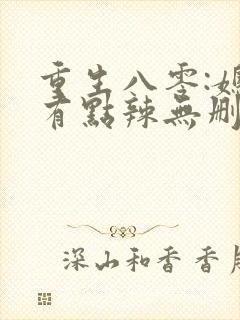 重生八零:媳
有點辣無刪
深山和香香